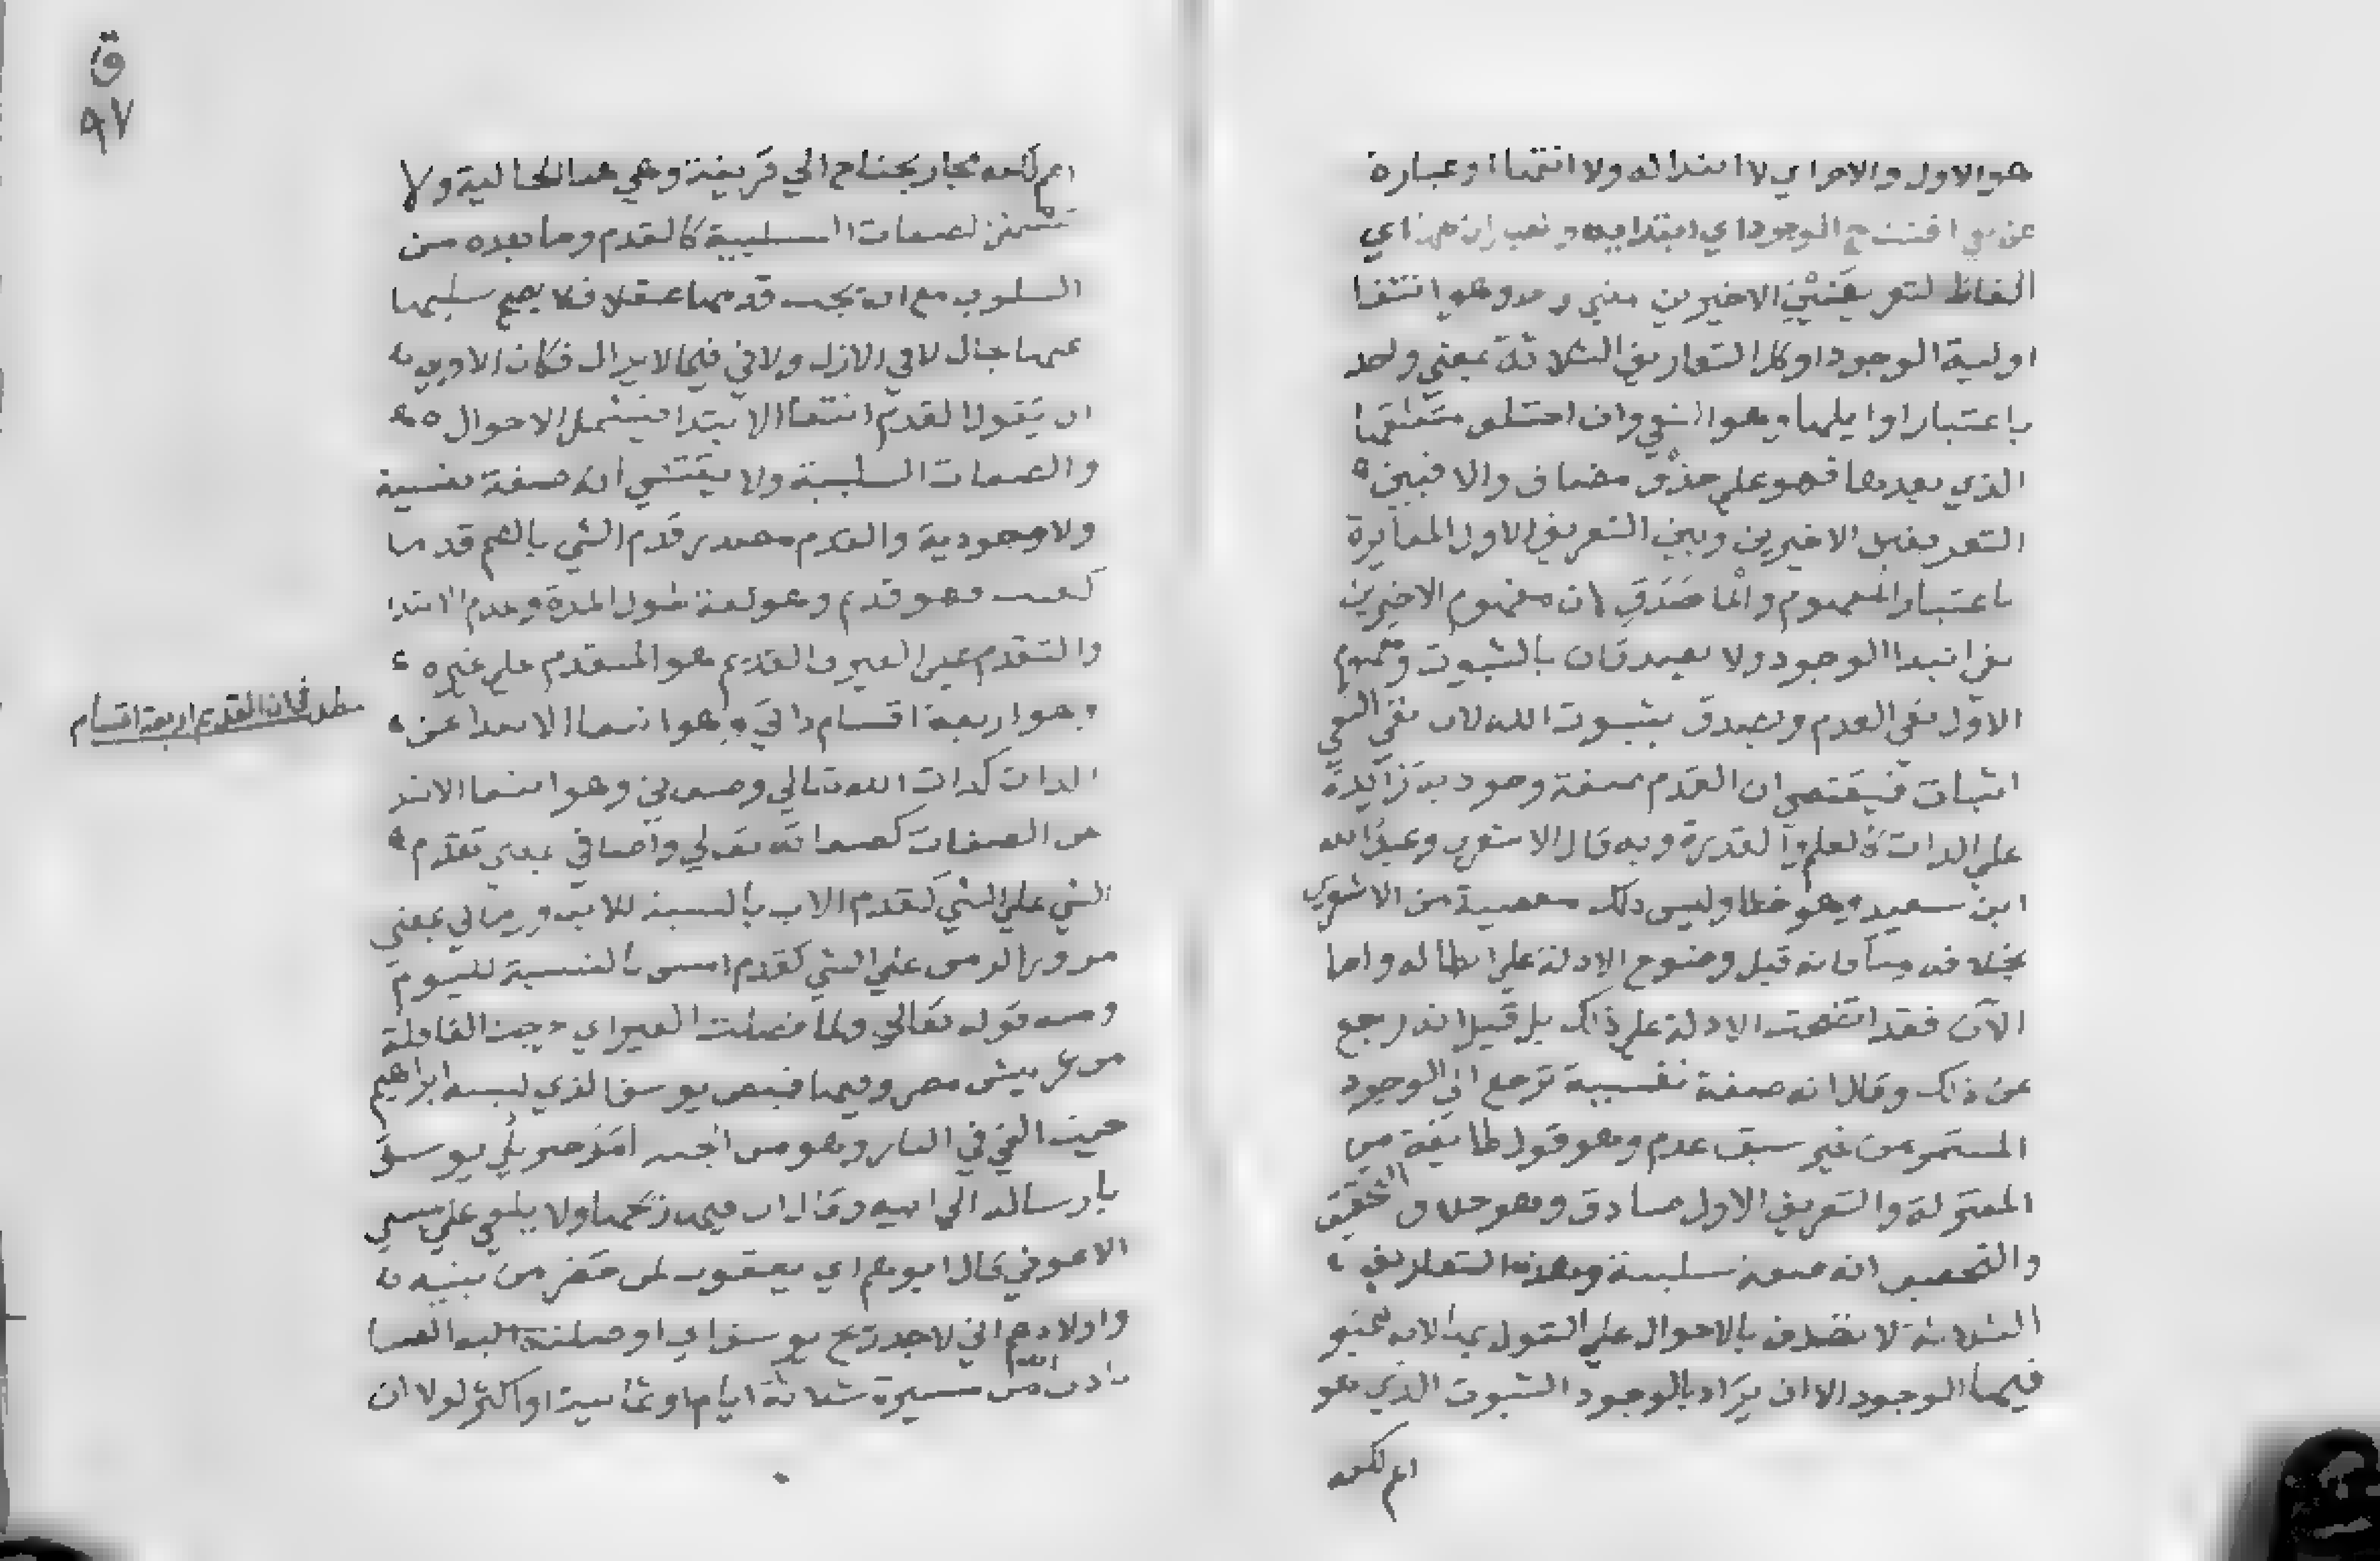 هو الاول والاخر اي لا ابتدا له ولا انتها او عبارة
عن نفي افتتاح الوجود اي ابتدايه و اي
الفاظ لتعريفين الاخيرين معني وهو انتفا
اولية الوجود او كل التعاريف الثلاثة بمعني واحد
باعتبار اوايلها وهو النفي وان اختلف متعلقها
الذي بعدها فهو علي حذف مضاف والا فبين
التعريفين الاخيرين وبين التعريف الاول المغايرة
باعتبار المفهوم والما صدق لان مفهوم الاخيرين
نفي ابتدا الوجود ولا يصدقان بالثبوت ومفهوم
الاول نفي العدم ويصدق بثبوت الله لان نفي النفي
اثبات فيقتضي ان القدم صفة وجودية زايدة
علي الذات كالعلم والقدرة وبه قال الاشعري وعبد الله
ابن سعيد وهو خطا وليس ذلك معصية من الاشعري
قبل وضوح الادلة علي ابطاله واما
الآن فقد اتضحت الادلة علي ذلك بل قيل انه رجع
عن ذلك وقال انه صفة نفسية ترجع الي الوجود
المستمر من غير سبق عدم وهو قول طايفة من
المعتزلة والتعريف الاول صادق وهو خلاف التحقيق
والتحقيق انه صفة سلبية وهذه التعاريف
الثلاثة لا تصدق بالاحوال علي القول بها لانه
فيها الوجود الا ان يراد بالوجود الثبوت الذي هو
اعم لكنه
ق
٩٧
اعم لكنه مجاز يحتاج الي قرينة وهي هنا الحالية ولا
تشمل الصفات السلبية كالقدم وما بعده من
السلوب مع انه يجب قدمها عقلا فلا يصح سلبها
عنها بحال لا في الازل ولا في فيما لا يزال فكان الاولي
ان يقول القدم انتفا الابتدا فيشمل الاحوال
والصفات السلبية ولا يقتضي انه صفة نفسية
ولا وجودية والقدم مصدر قدم الشي بالضم قدما
فهو قديم وهو لغة طول المدة وعدم الابتدا
والتقدم علي الغير والقديم هو المتقدم علي غيره
وهو اربعة اقسام ذاتي وهو انتفا الابتدا عن
الذات كذات الله تعالي وصفاتي وهو انتفا الابتدا
عن الصفات كصفاته تعالي واضافي بمعني تقدم
الشي علي الشي كتقدم الاب بالنسبة للابن وزماني بمعني
مرور الزمن علي الشي كقدم امس بالنسبة لليوم
ومنه قوله تعالي ولما فصلت العير اي خرجت القافلة
من عريش مصر وفيها قميص يوسف الذي لبسه ابراهيم
حين القي في النار وهو من الجنة امر جبريل يوسف
بارساله الي ابيه وقال ان فيه ريحها ولا يلقي علي مبتلي
الا عوفي قال ابوهم اي يعقوب لمن حضر من بنيه
واولادهم اني لاجد ريح يوسف اي اوصلته اليه الصبا
باذن الله من مسيرة ثلاثة ايام او ثمانية او اكثر لولا ان
مطلب في ان القديم اربعة اقسام